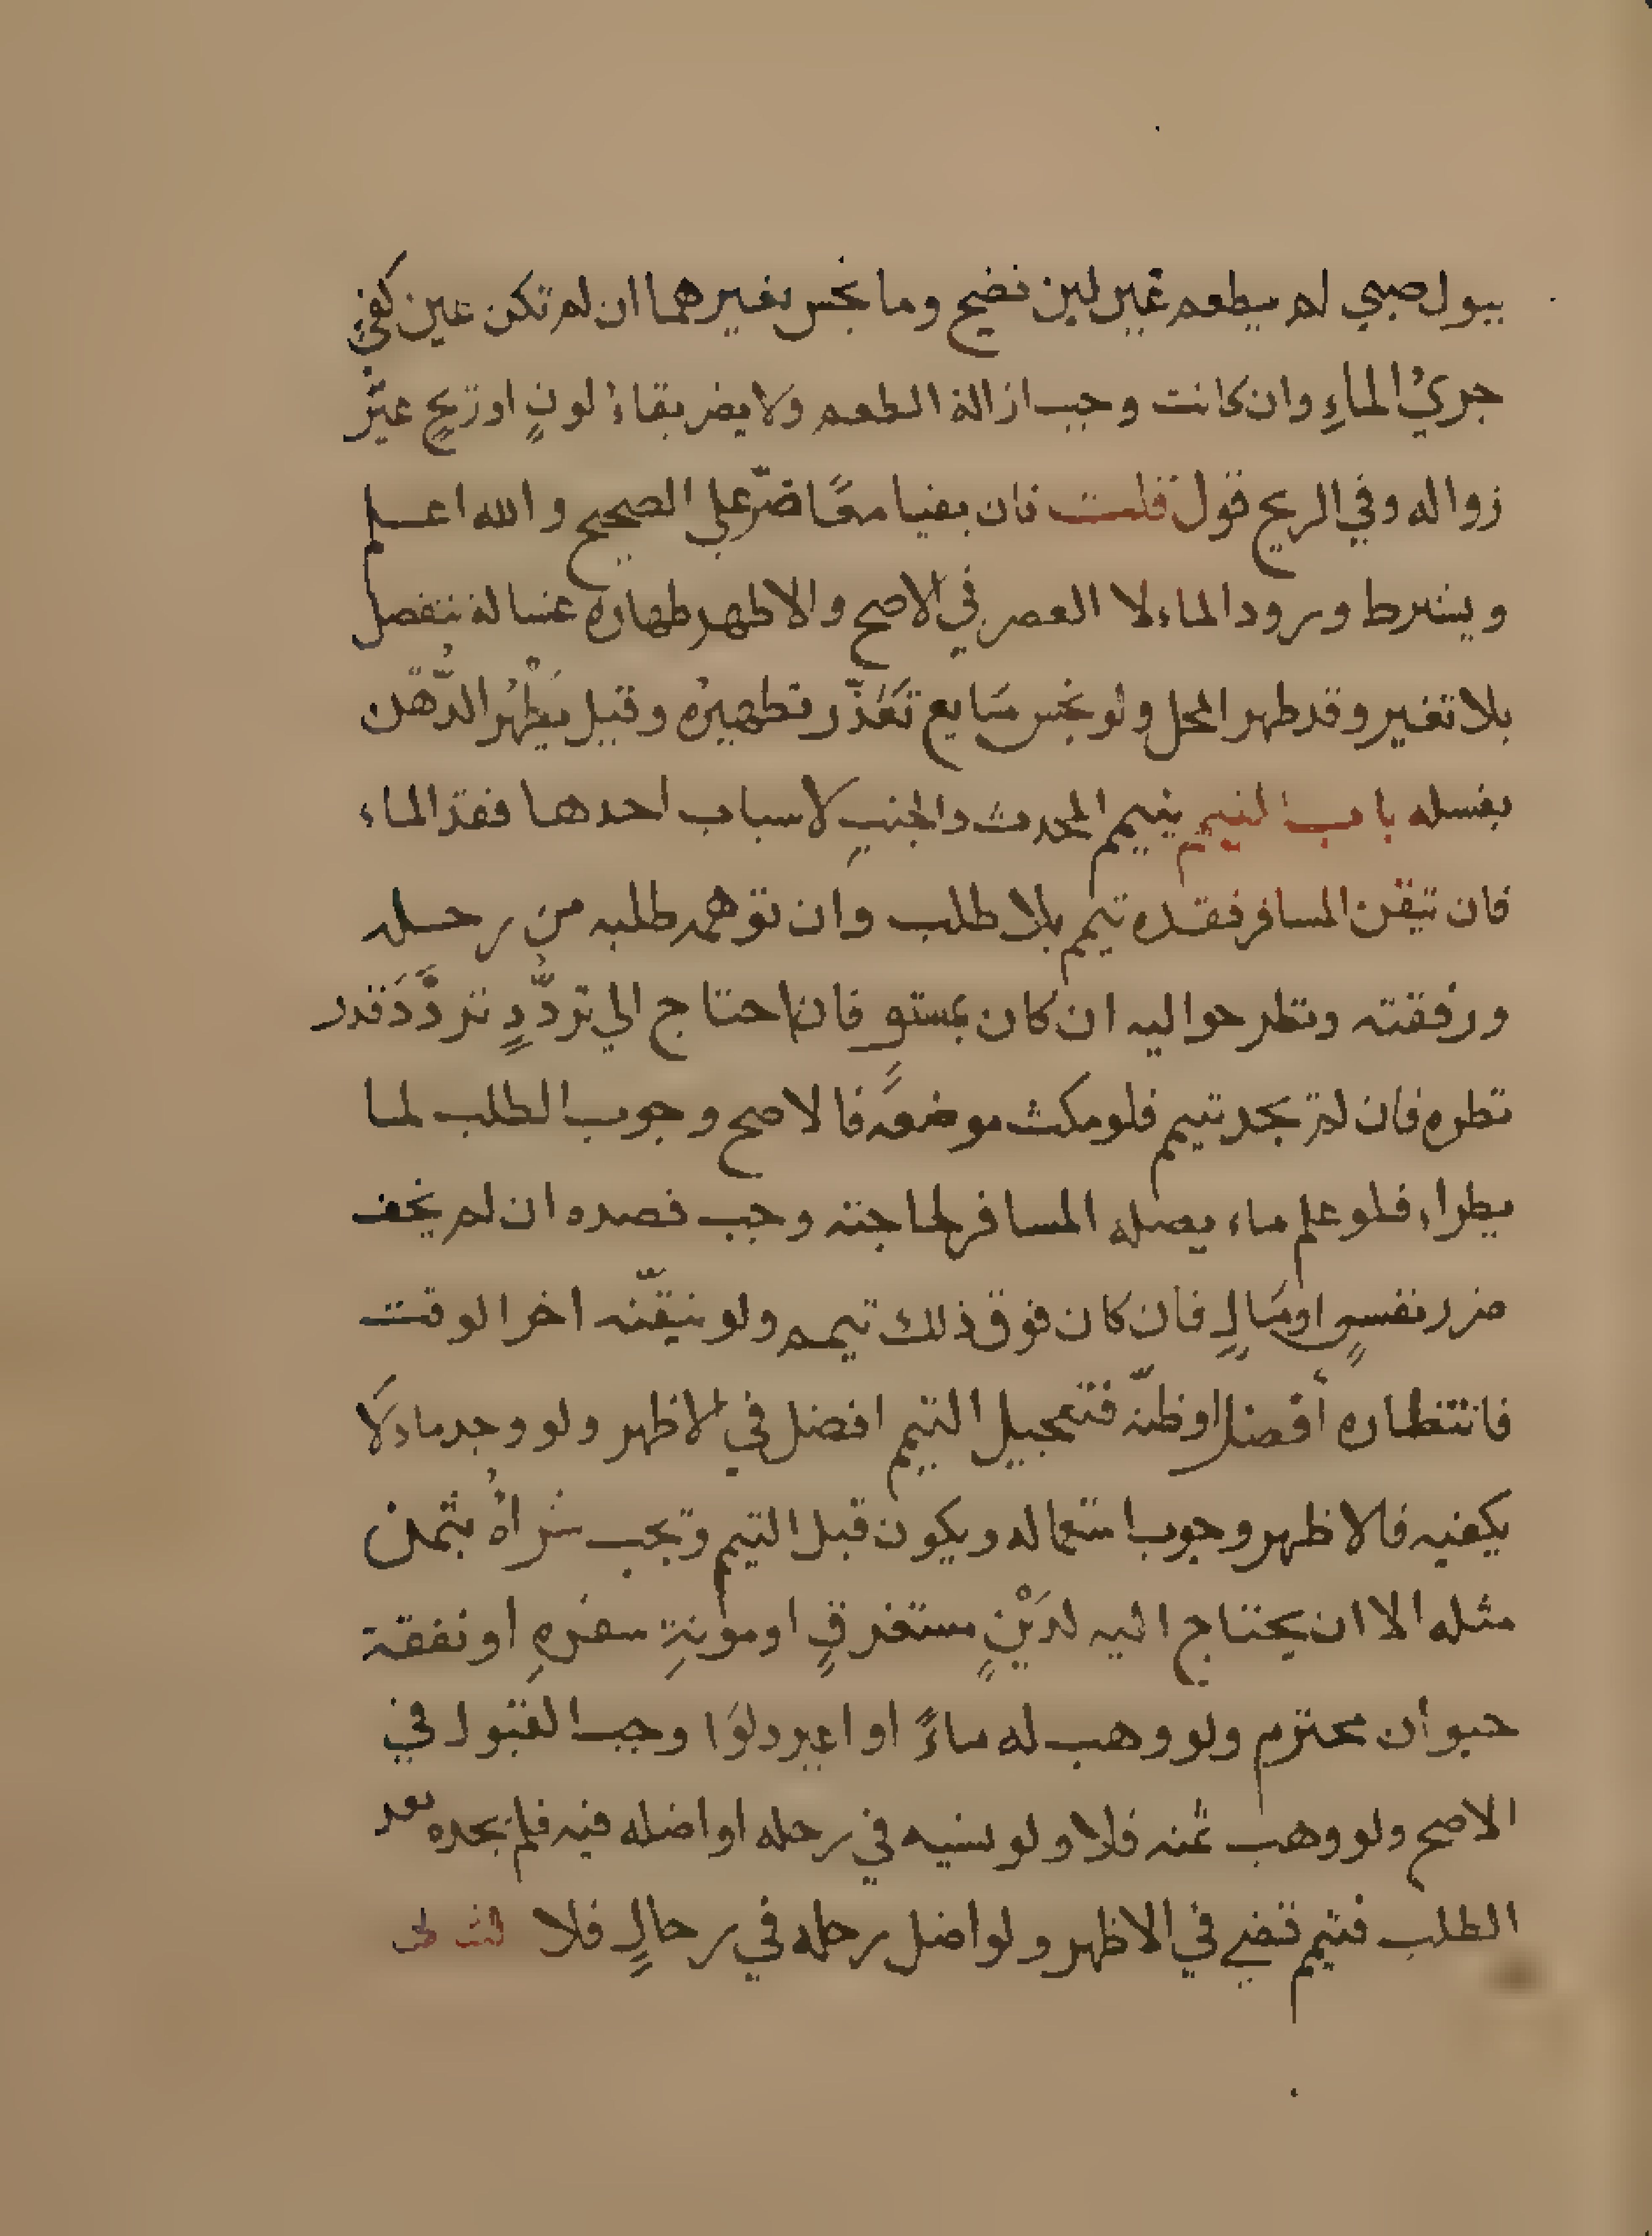 ببول صبي لم يطعم غير لبن نضح وما نجس بغيرهما ان لم تكن عين كفي
جريُ الماءِ وان كانت وجب ازالة الطعم ولا يضر بقاءُ لونٍ او ريحٍ عسر
زواله وفي الريح قول قلت فان بقيا معًا ضرّ علي الصحيح والله اعلم
ويشترط ورود الماء لا العصر في الاصح والاظهر طهارة غسالة تنفصل
بلا تغير وقد طهر المحل ولو نجس مَايع تَعَذّر تطهيرُه وقيل يَطْهُر الدُّهن
بغسله باب التيمم يتيمم المحدث والجنبِ لاسباب احدها فقد الماء
فان تيقن المسافر فقده تيمم بلا طلب وان توهمه طلبه من رحله
ورفقته ونظر حواليه ان كان بمستوٍ فان احتاج الي تردُّدٍ تردَّدَ قدر
نظره فان لم يجد تيمم فلو مكث موضعَه فالاصح وجوب الطلب لما
يطراء فلو علم ماء يصله المسافر لحاجته وجب قصده ان لم يخف
ضرر نفسٍ او مَالٍ فان كان فوق ذلك تيمم ولو تيقّنه اخر الوقت
فانتظاره أفضل او ظنّه فتعجيل التيمم افضل في الاظهر ولو وجد ماء لَا
يكفيه فالاظهر وجوب استعماله ويكون قبل التيمم ويجب شراؤُه بثمن
مثله الا ان يحتاج اليه لدَيْنٍ مستغرقٍ او موُنةِ سفرهِ او نفقة
حيوان محترم ولو وهب له ماءً او اعير دلوَا وجب القبول في
الاصح ولو وهب ثمنه فلا ولو نسيه في رحله او اضله فيه فلم يجده بعد
الطلب فتيمم قضي في الاظهر ولو اضل رحله في رحالٍ فلا